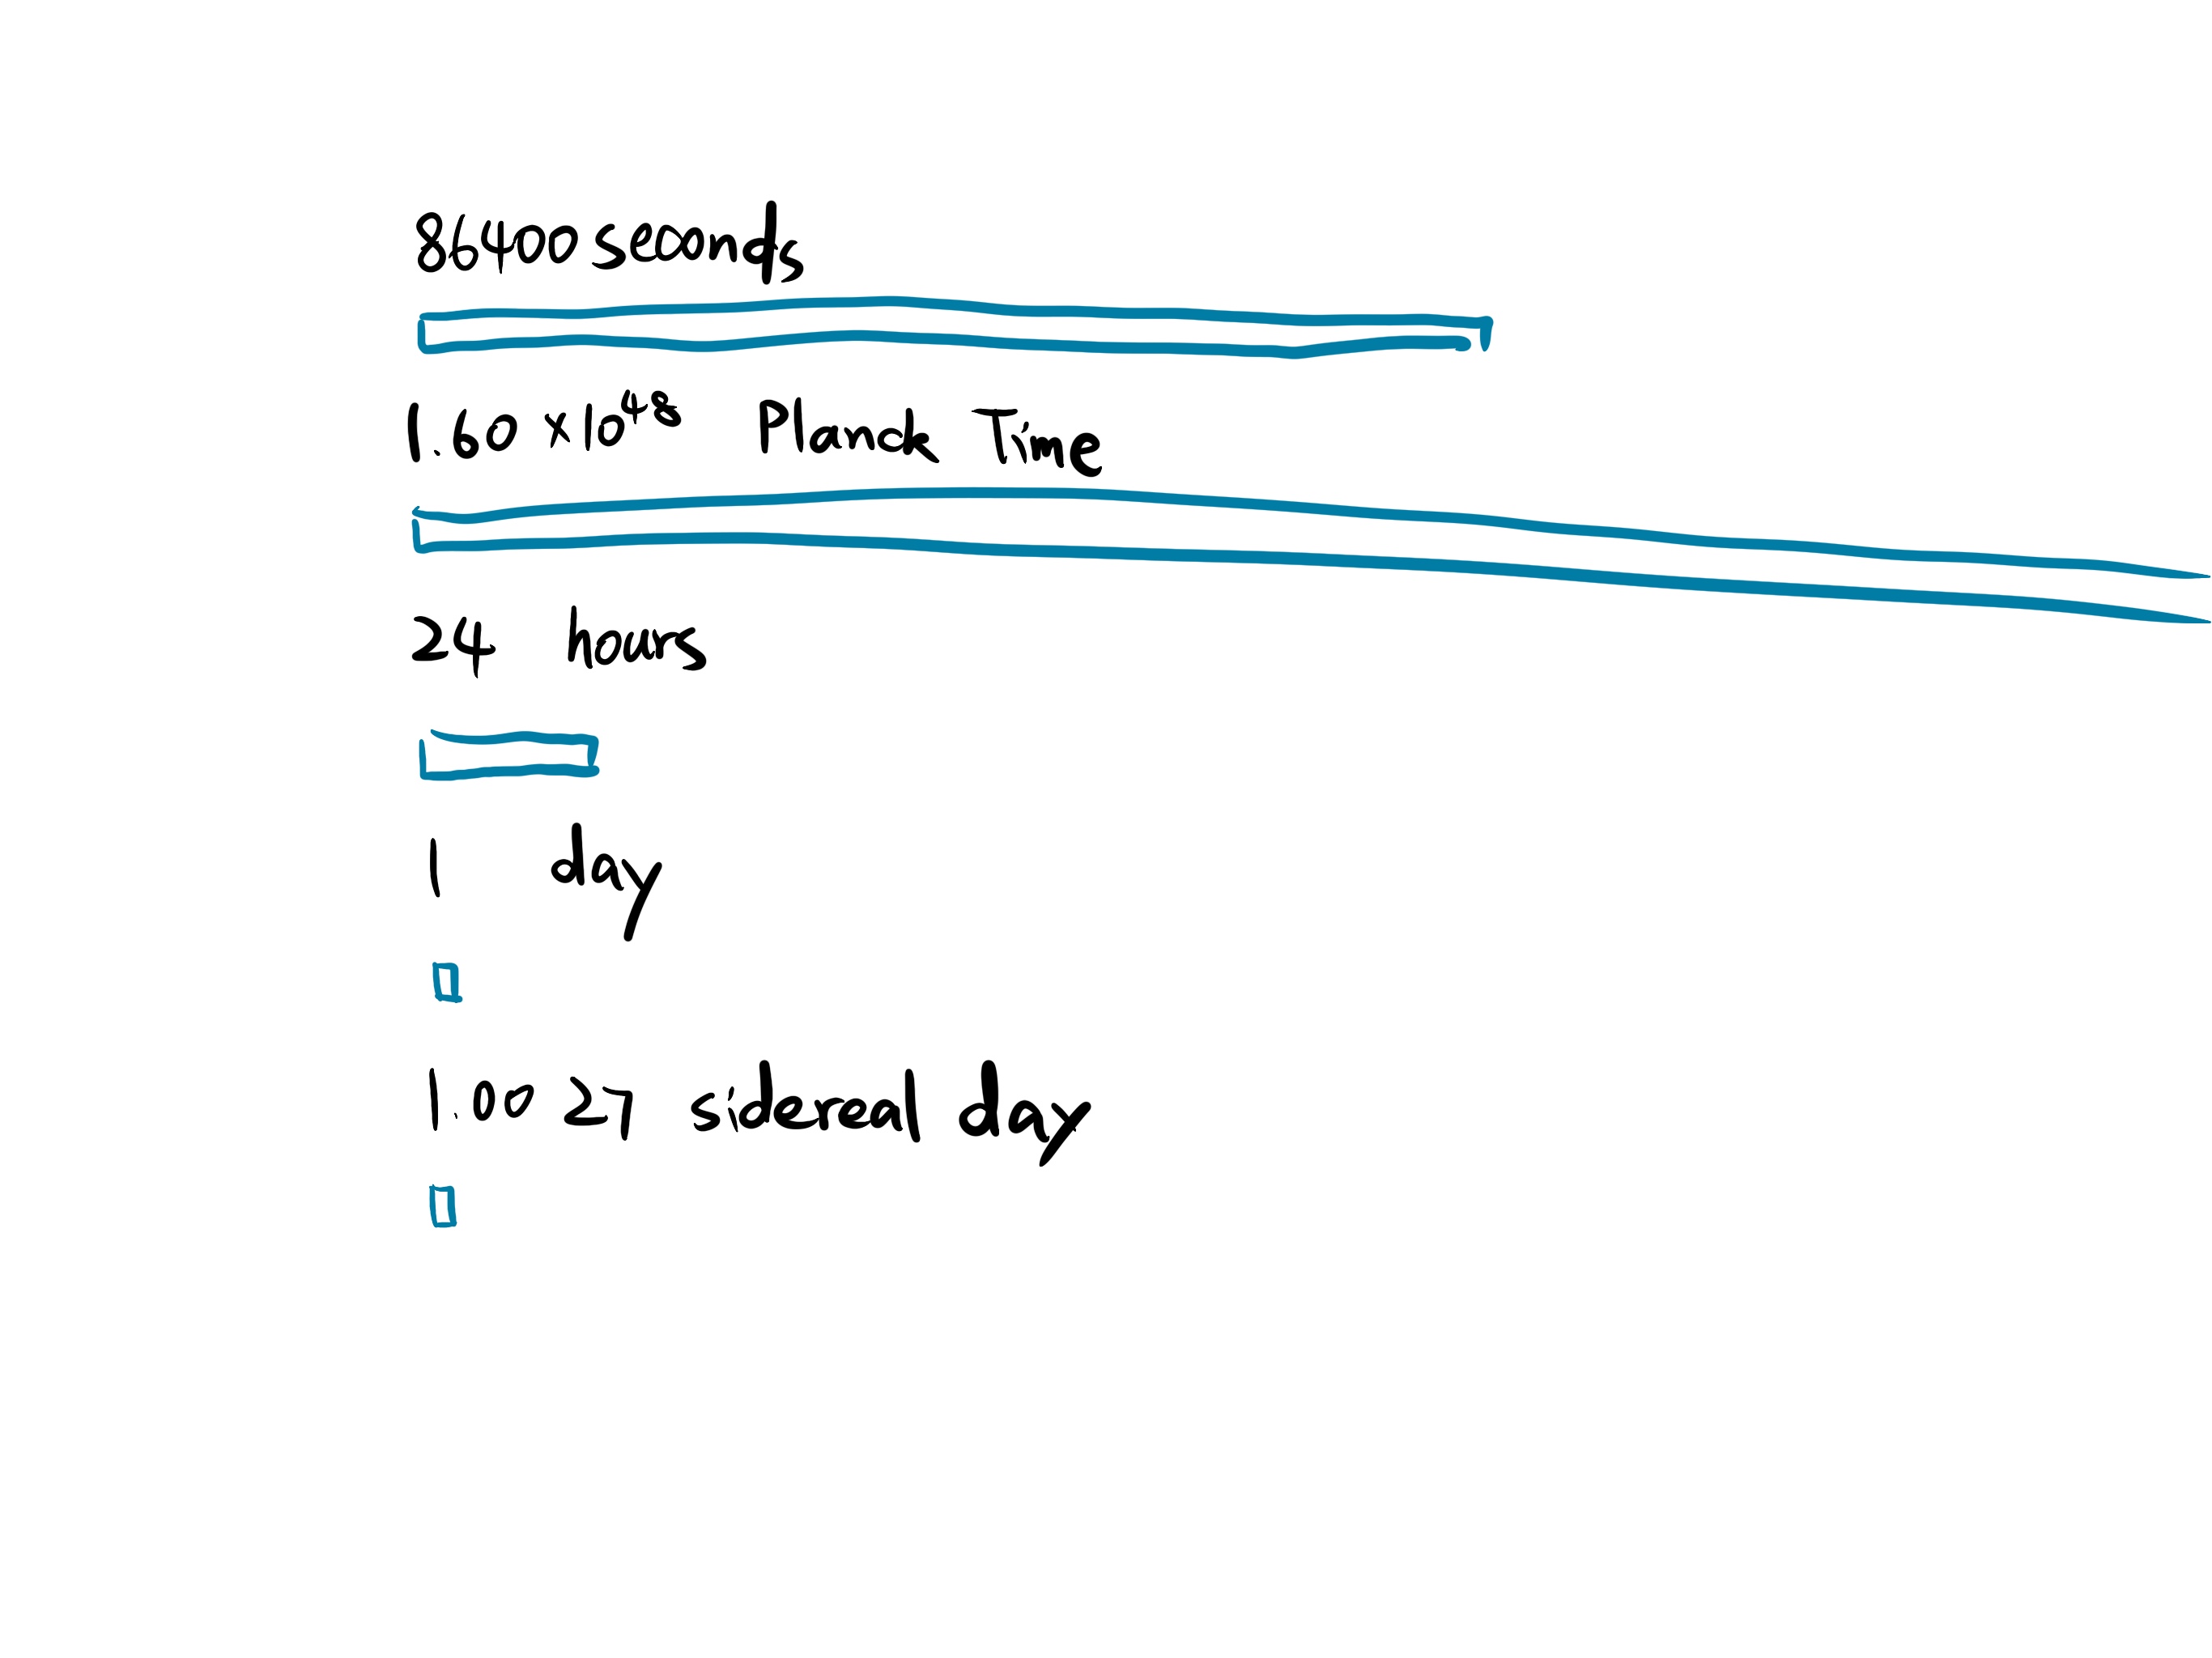 86400 seconds
1.60 × 10⁴⁸ Planck Time
24 hours
1 day
1.0027 sidereal day